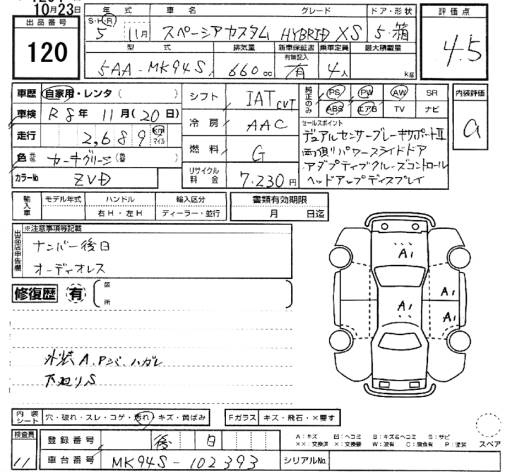 10月23日
出品番号
120
年式 車名 グレード ドア・形状
S・H・R 5年 11月 スペーシアカスタム HYBRID XS 5・箱
型式 排気量 新車保証書 有無記入 乗車定員 最大積載量
5AA-MK94S 660cc 有 4人 kg
評価点
4.5
車歴 自家用・レンタ( )
車検 R8年11月(20日)
走行 2,689 km マイル
色 カーキグリーン( )
カラーNo ZVD
シフト IAT CVT
冷房 AAC
燃料 G
リサイクル料金 7,230円
純正のみ
PS PW AW SR
ABS エアB TV ナビ
セールスポイント
デュアルセンサーブレーキサポートII
両側パワースライドドア
アダプティブクルーズコントロール
ヘッドアップディスプレイ
内装評価
a
輸入車 モデル年式 ハンドル 輸入区分
右H・左H ディーラー・並行
書類有効期限
月 日迄
出品店申告欄
※注意事項等記載
ナンバー後日
オーディオレス
修復歴 有 箇所
外装A、Pン、ハガレ
下廻りS
A1
A1
A1
A1
内装シート 穴・破れ・スレ・コゲ・汚れ・キズ・黄ばみ
Fガラス キズ・飛石・×要す
検査員
11
登録番号 後日
車台番号 MK94S-102393
シリアルNo.
A:キズ U:ヘコミ B:キズ&ヘコミ S:サビ
××:交換済 ×:要交換 W:波有 C:腐食有 P:塗装
スペア